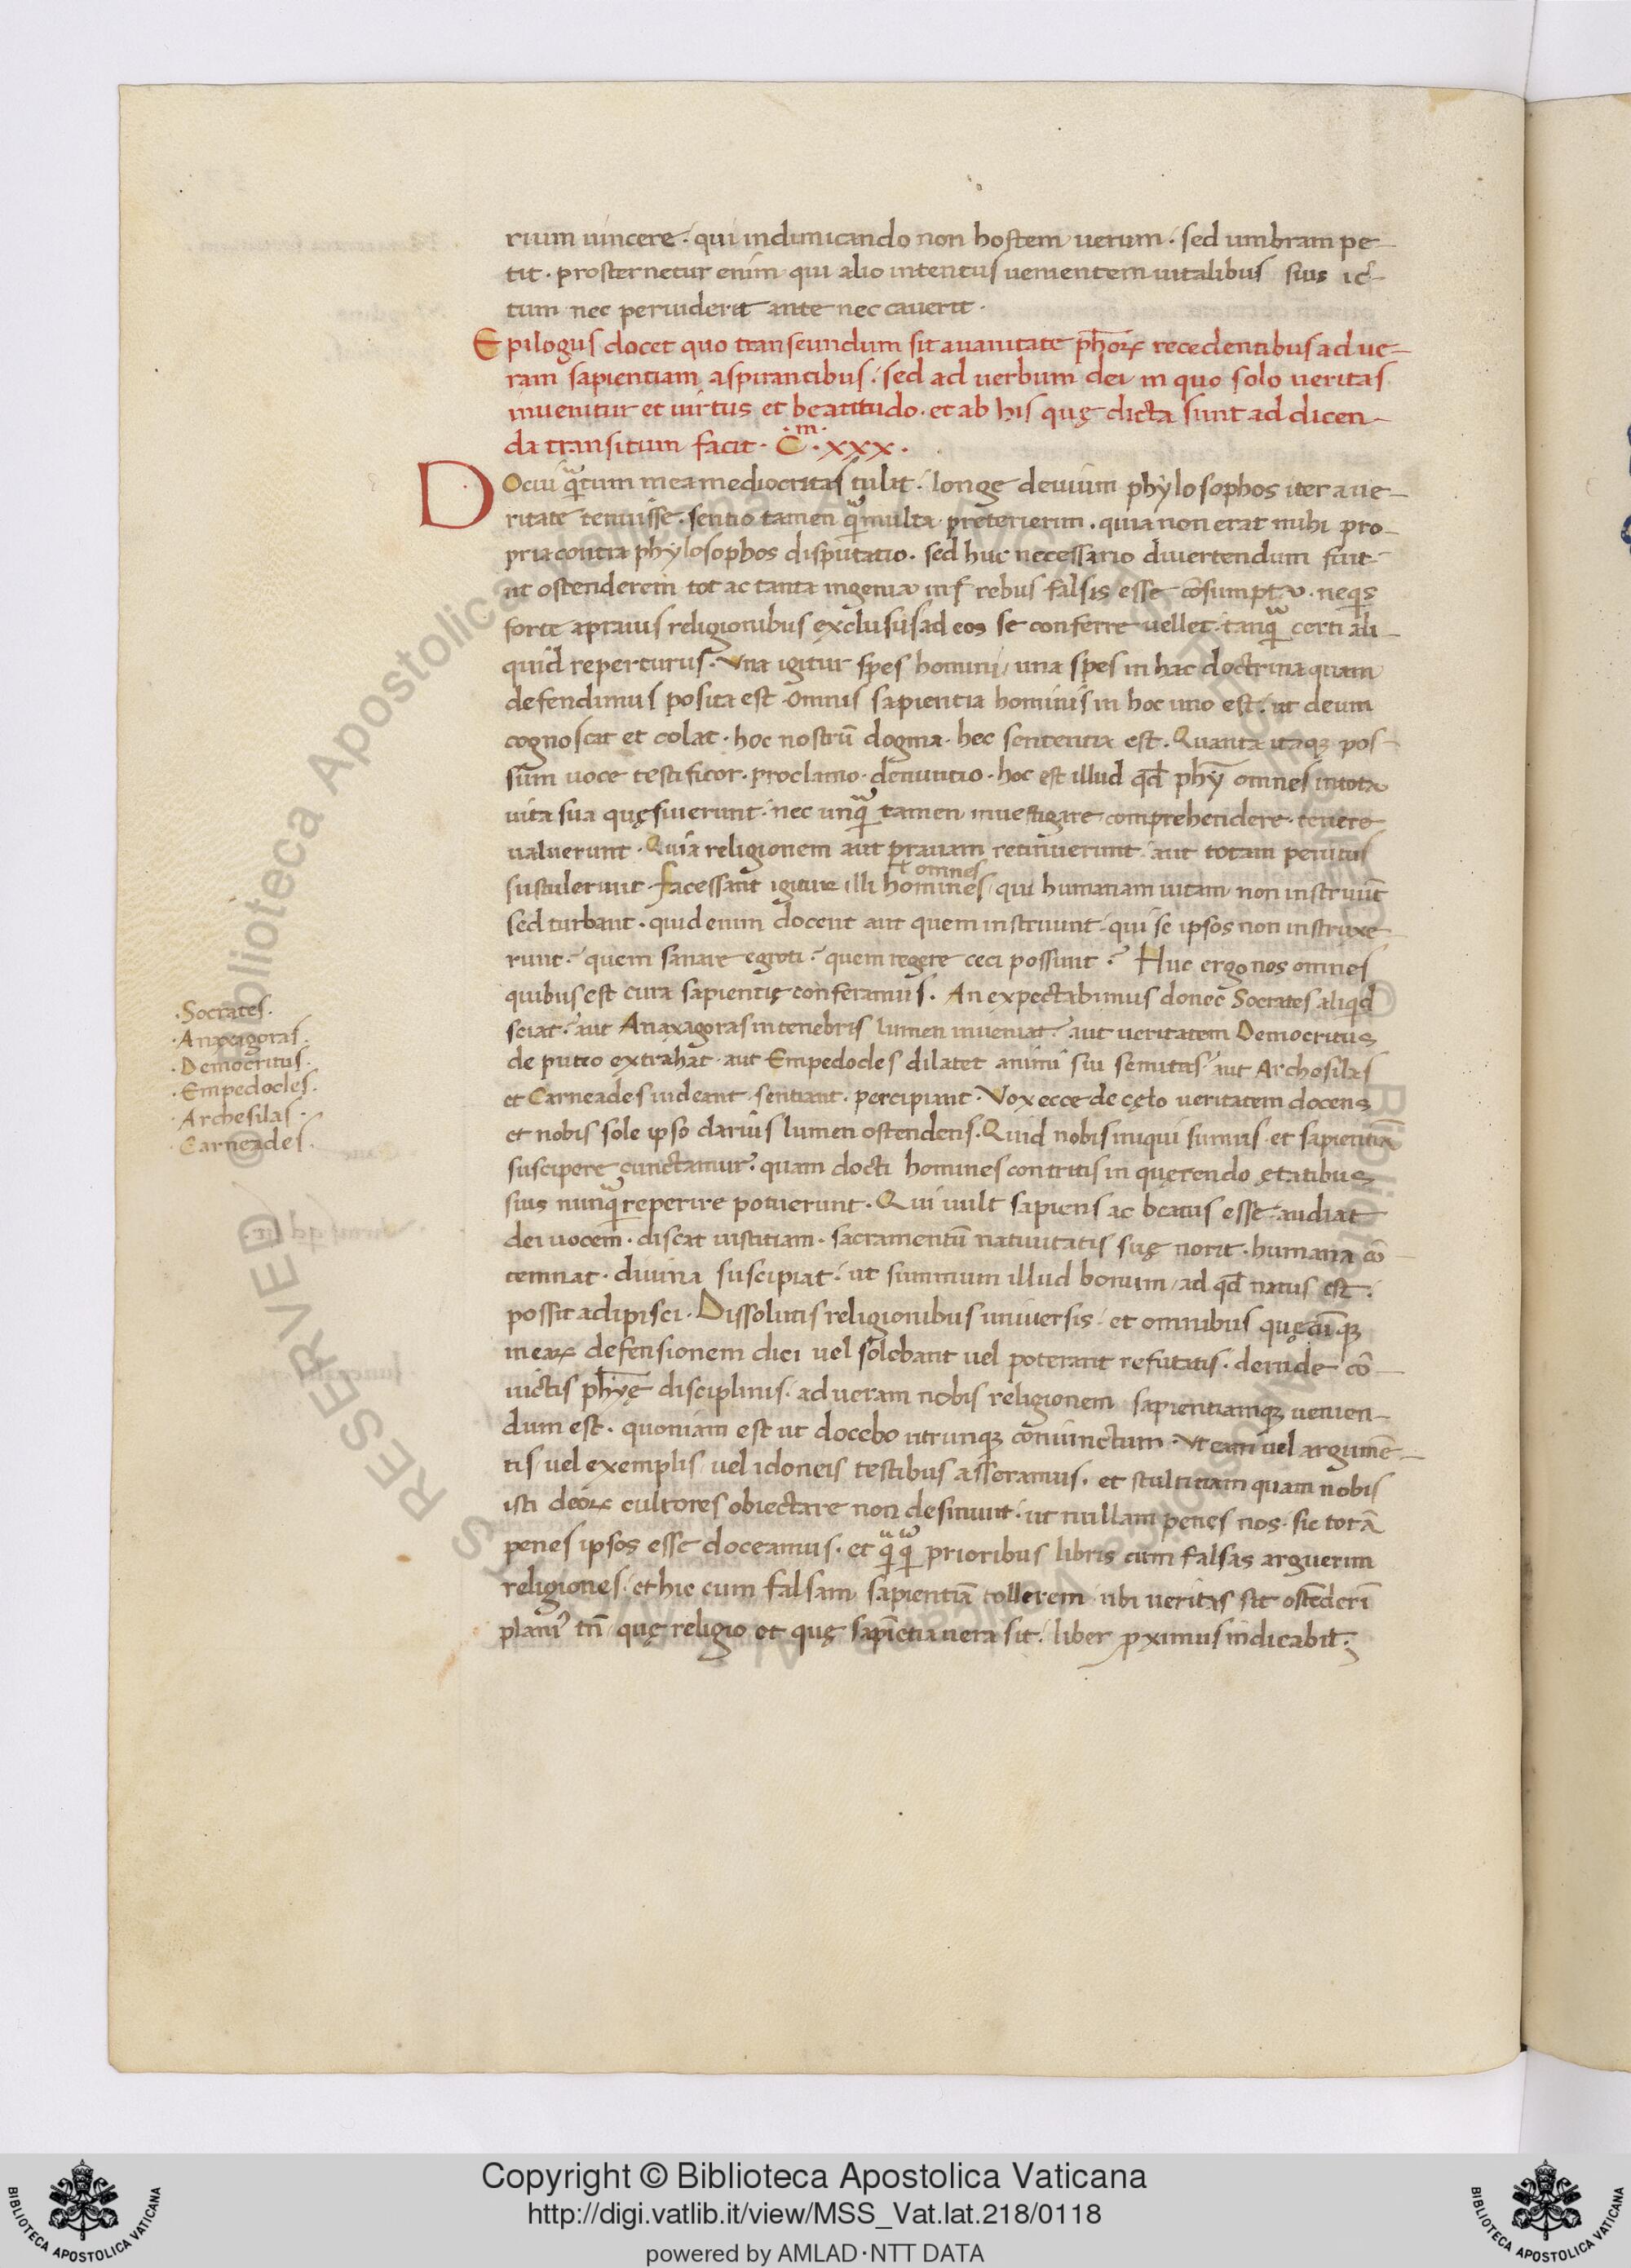 rium uincere · qui indimicando non hostem uerum · sed umbram pe-
tit · prosternetur enim qui alio intentus uenientem uitalibus suis ic-
tum nec peruiderit ante nec cauerit ·
Epilogus docet quo transeundum sit auanitate ph̅orꝝ recedentibus ad ue-
ram sapientiam aspirantibus · sed ad uerbum dei in quo solo ueritas
inuenitur et uirtus et beatitudo · et ab his quę dicta sunt ad dicen-
da transitum facit · C · m · xxx ·
Docui qͣntum mea mediocritas tulit · longe deuium phylosophos iter a ue-
ritate tenuisse · sentio tamen qͣmulta preterierim · quia non erat mihi pro-
pria contra phylosophos disputatio · sed huc necessario diuertendum fuit
ut ostenderem tot ac tanta ingenia inf rebus falsis esse cōsumpta · neqis
forte aprauis religionibus exclusus ad eos se conferre uellet · tanqͣ certi ali-
quid reperturus · Vna igitur spes homini / una spes in hac doctrina quam
defendimus posita est · omnis sapientia hominis in hoc uno est · ut deum
cognoscat et colat · hoc nostrū dogma · hec sententia est · Quanta itaqꝫ pos-
sum uoce testificor · proclamo · denuntio · hoc est illud qđ phȳ omnes in tota
uita sua quęsiuerunt · nec unqͣ tamen inuestigare comprehendere · tenere
ualuerunt · Quia religionem aut prauam retinuerunt aut totam penitus
sustulerunt · facessant igitur illi homines / qui humanam uitam non instruūt
ł omnes
sed turbant · quid enim docent aut quem instruunt · qui se ipsos non instruxe-
runt ? quem sanare egroti ? quem regere ceci possunt ? Huc ergo nos omnes
quibus est cura sapientię conferamus · An expectabimus donec Socrates aliqd
sciat ? aut Anaxagoras in tenebris lumen inueniat ? aut ueritatem Democritus
de puteo extrahat · aut Empedocles dilatet animi sui semitas aut Archesilas
et Carneades uideant · sentiant · percipiant · Vox ecce de cęlo ueritatem docens
et nobis sole ipso clarius lumen ostendens · Quid nobis iniqui sumus · et sapientia
suscipere cunctamur ? quam docti homines contritis in quęrendo ętatibus
suis nunqͣ reperire potuerunt · Qui uult sapiens ac beatus esse audiat
dei uocem · discat iustitiam · sacramentū natiuitatis suę norit · humana cō-
temnat · diuina suscipiat · ut summum illud bonum / ad qđ natus est ·
possit adipisci · Dissolutis religionibus uniuersis · et omnibus quęcūqꝫ
in earꝝ defensionem dici uel solebant uel poterant refutatis · deinde cō-
uictis phȳę disciplinis · ad ueram nobis religionem sapientiamqꝫ uenien-
dum est · quoniam est ut docebo utrunqꝫ coniunctum · Vt eam uel argumē-
tis / uel exemplis / uel idoneis testibus asseramus · et stultitiam quam nobis
isti deorꝝ cultores obiectare non desinunt · ut nullam penes nos · sic totā
penes ipsos esse doceamus · et qͣqͣ prioribus libris cum falsas arguerim
religiones · et hic cum falsam sapientiā tollerem ubi ueritas sit ostēderī
plani' tn̄ quę religio et quę sapiētia uera sit · liber ꝓximus indicabit ·
· Socrates ·
· Anaxagoras ·
· Democritus ·
· Empedocles ·
· Archesilas ·
Carneades ·
Copyright © Biblioteca Apostolica Vaticana
http://digi.vatlib.it/view/MSS_Vat.lat.218/0118
powered by AMLAD·NTT DATA
BIBLIOTECA APOSTOLICA VATICANA
BIBLIOTECA APOSTOLICA VATICANA